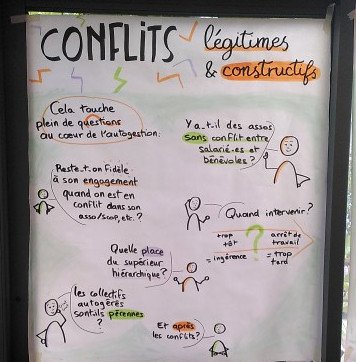 CONFLITS légitimes
& constructifs
Cela touche
plein de questions
au cœur de l'autogestion:
Y a_t_il des assos
sans conflit entre
salarié.es et
bénévoles ?
Reste_t_on Fidèle
à son engagement
quand on est en
conflit dans son
asso/scop, etc. ?
Quand intervenir ?
trop
tôt
= ingérence
?
arrêt de
travail
= trop
tard
Quelle place
du supérieur
hiérarchique ?
les collectifs
autogérés
sont ils pérennes
?
Et après
les conflits ?